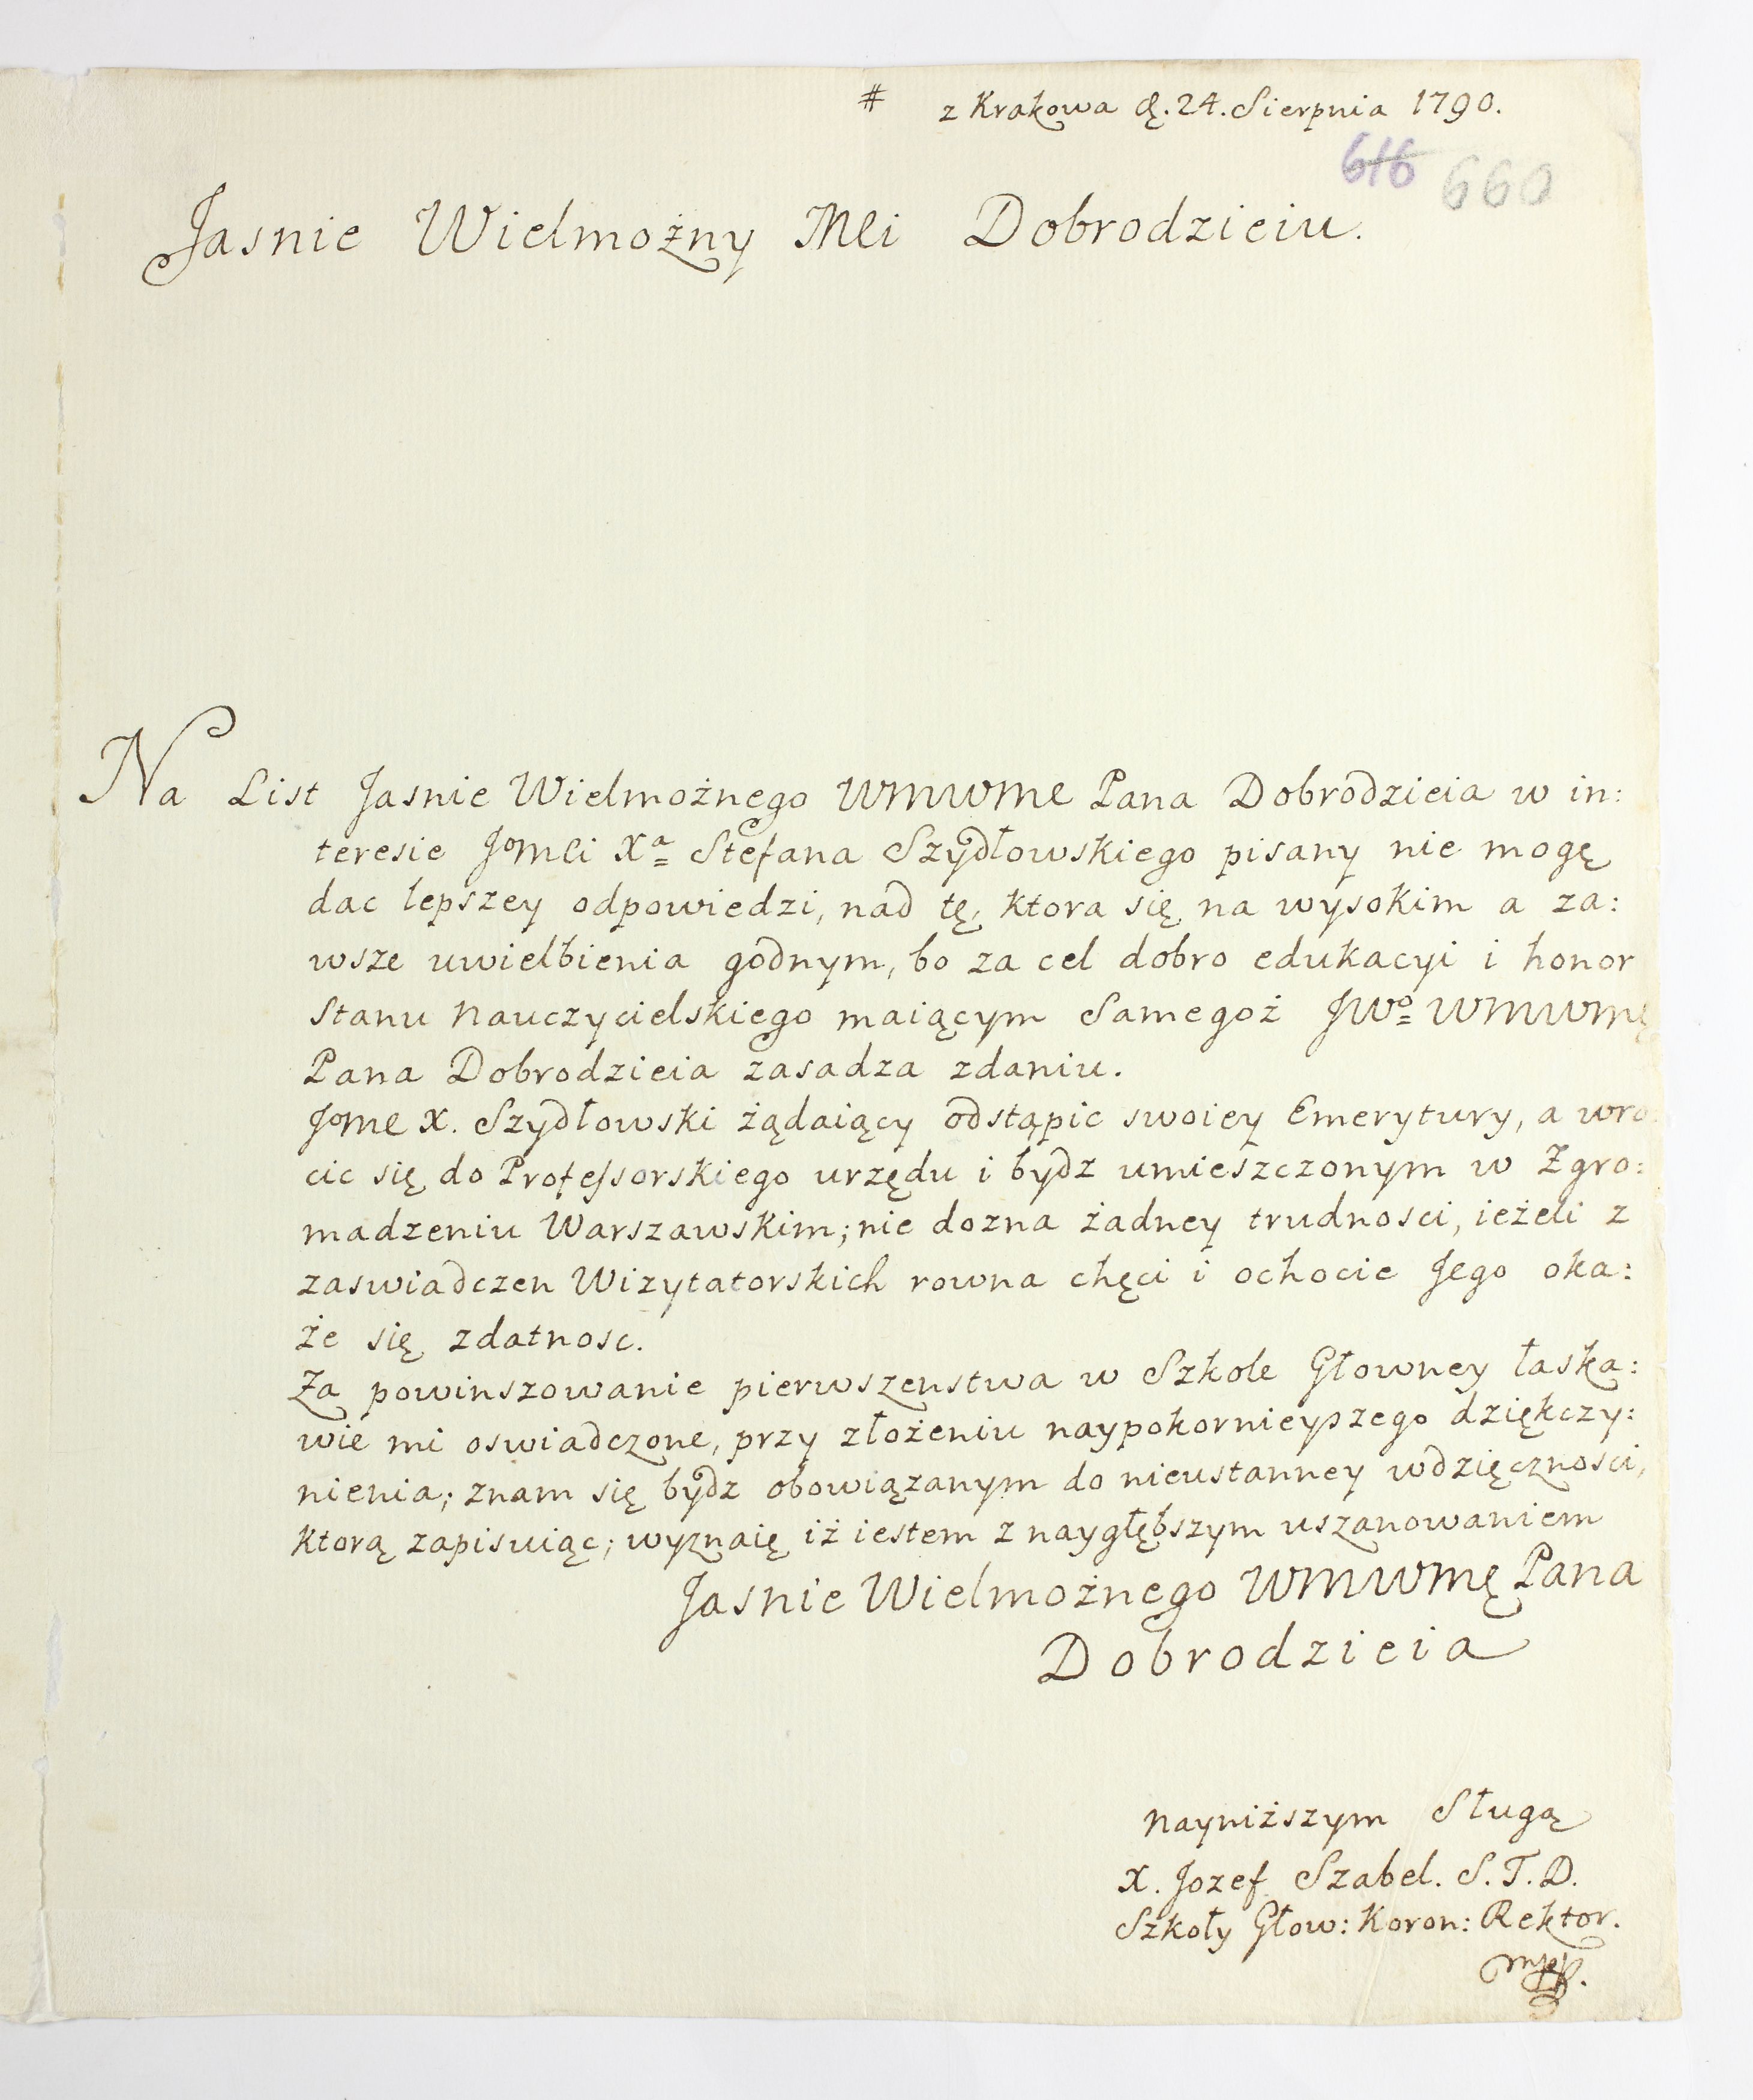 # z Krakowa d. 24. Sierpnia 1790.
616 660
Jasnie Wielmożny Mci Dobrodzieiu.
Na List Jasnie Wielmożnego WMWMC Pana Dobrodzieia w in:
teresie JoMCi Xa Stefana Szydłowskiego pisany nie mogę
dac lepszey odpowiedzi, nad tę, ktora się na wysokim a za:
wsze uwielbienia godnym, bo za cel dobro edukacyi i honor
Stanu Nauczycielskiego maiącym Samegoż JWo WMWMę
Pana Dobrodzieia zasadza zdaniu.
JoMC X. Szydłowski żądaiący odstąpic swoiey Emerytury, a wro:
cic się do Professorskiego urzędu i bydz umieszczonym w Zgro:
madzeniu Warszawskim; nie dozna żadney trudnosci, ieżeli z
zaswiadczen Wizytatorskich rowna chęci i ochocie Jego oka:
że się zdatnosc.
Za powinszowanie pierwszenstwa w Szkole Głowney łaska:
wie mi oswiadczone, przy złożeniu naypokornieyszego dziękczy:
nienia; znam się bydz obowiązanym do nieustanney wdzięcznosci,
ktorą zapisuiąc; wyznaię iż iestem z naygłębszym uszanowaniem
Jasnie Wielmożnego WMWMę Pana
Dobrodzieia
Nayniższym Sługą
X. Jozef Szabel. S. T. D.
Szkoły Głow: Koron: Rektor.